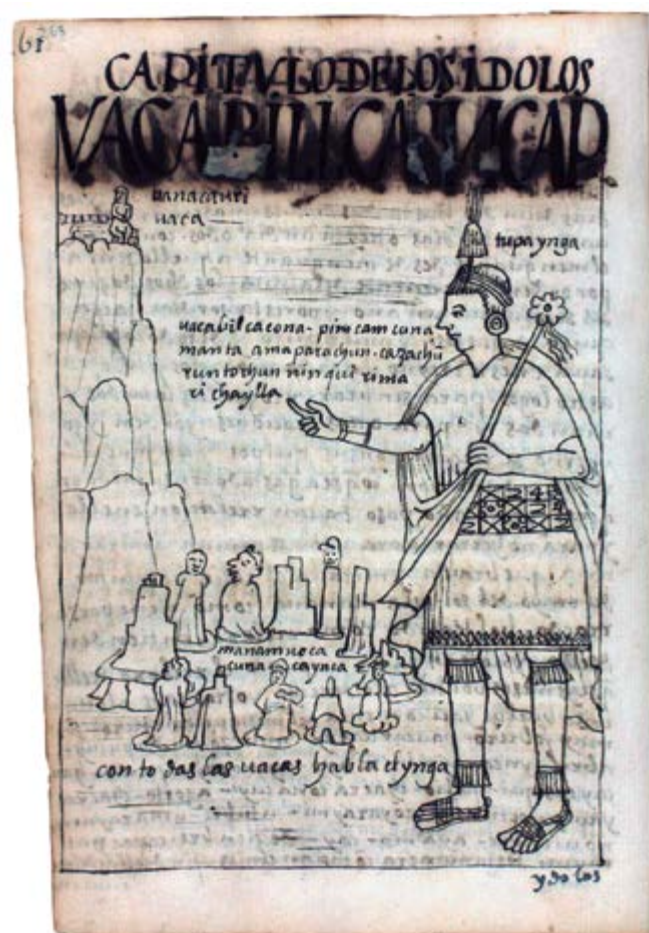 CAPITVLO DE LOS IDOLOS
VACA BILLCA INCAP
uanacauri
uaca
tupa ynga
uacabilcacona - pim camcuna
manta ama parachun - cazachũ
runtochun ninqui rima
ri chaylla
manam noca
cuna cayaca
con todas las uacas habla el ynga
ydolos